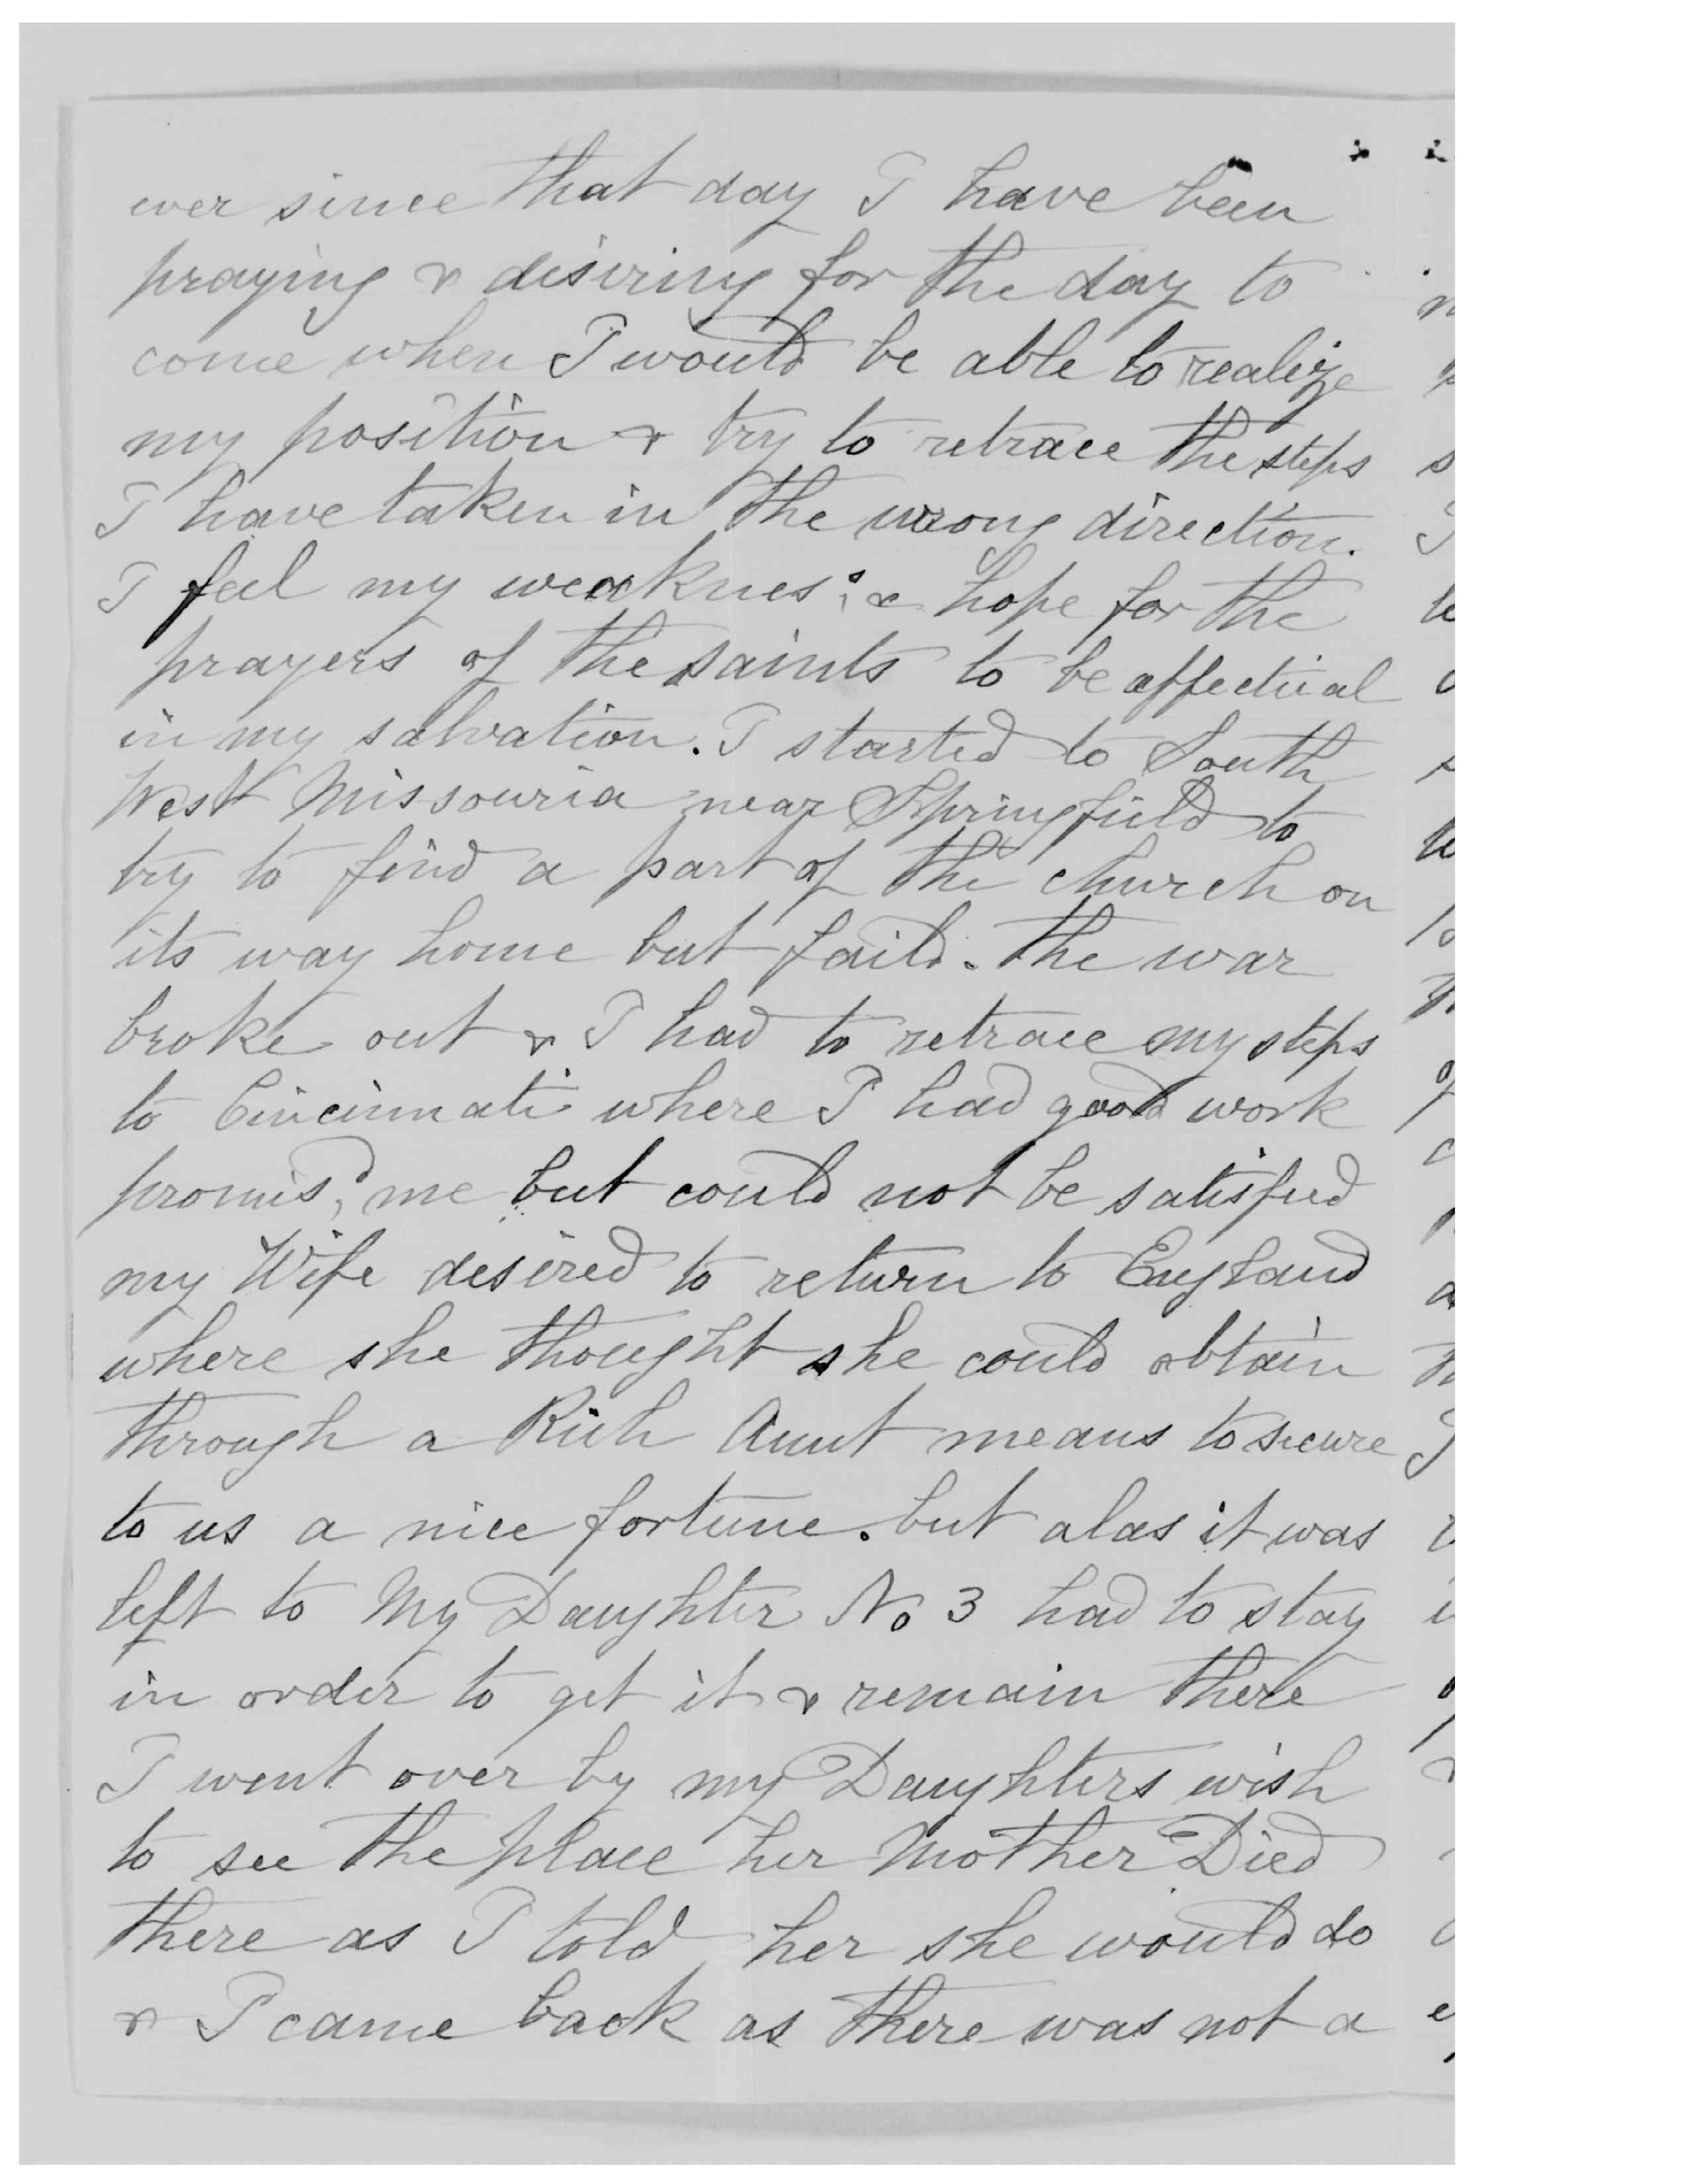 ever since that day I have been
praying & desiring for the day to
come when I would be able to realize
my position & try to retrace the steps
I have taken in the wrong direction.
I feel my weakness & hope for the
prayers of the saints to be affectual
in my salvation. I started to South
West Missouria near Springfield to
try to find a part of the church on
its way home but faild. the war
broke out & I had to retrace my steps
to Cincinnati where I had good work
promis,d me but could not be satisfied
my Wife desired to return to England
where she thought she could obtain
through a Rich Aunt means to secure
to us a nice fortune. but alas it was
left to My Daughter No 3 had to stay
in order to get it & remain there
I went over by my Daughters wish
to see the place her Mother Died
there as I told her she would do
& I came back as there was not a